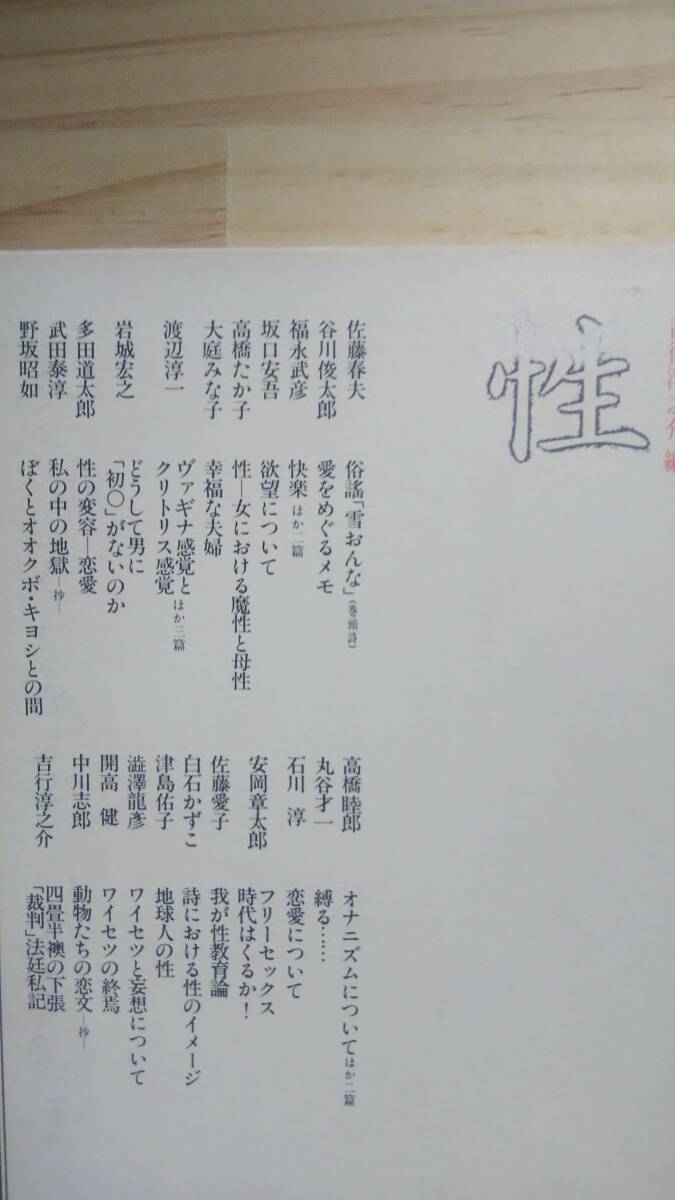 性
吉行淳之介 編
佐藤春夫 俗謠「雪おんな」(巻頭詩)
谷川俊太郎 愛をめぐるメモ
福永武彦 快楽 ほか二篇
坂口安吾 欲望について
高橋たか子 性―女における魔性と母性
大庭みな子 幸福な夫婦
渡辺淳一 ヴァギナ感覚と
クリトリス感覚 ほか三篇
岩城宏之 どうして男に
「初〇」がないのか
多田道太郎 性の変容―恋愛
武田泰淳 私の中の地獄―抄―
野坂昭如 ぼくとオオクボ・キヨシとの間
高橋睦郎 オナニズムについて ほか二篇
丸谷才一 縛る……
石川 淳 恋愛について
安岡章太郎 フリーセックス
時代はくるか!
佐藤愛子 我が性教育論
白石かずこ 詩における性のイメージ
津島佑子 地球人の性
澁澤龍彥 ワイセツと妄想について
開高 健 ワイセツの終焉
中川志郎 動物たちの恋文―抄―
吉行淳之介 四畳半襖の下張
「裁判」法廷私記